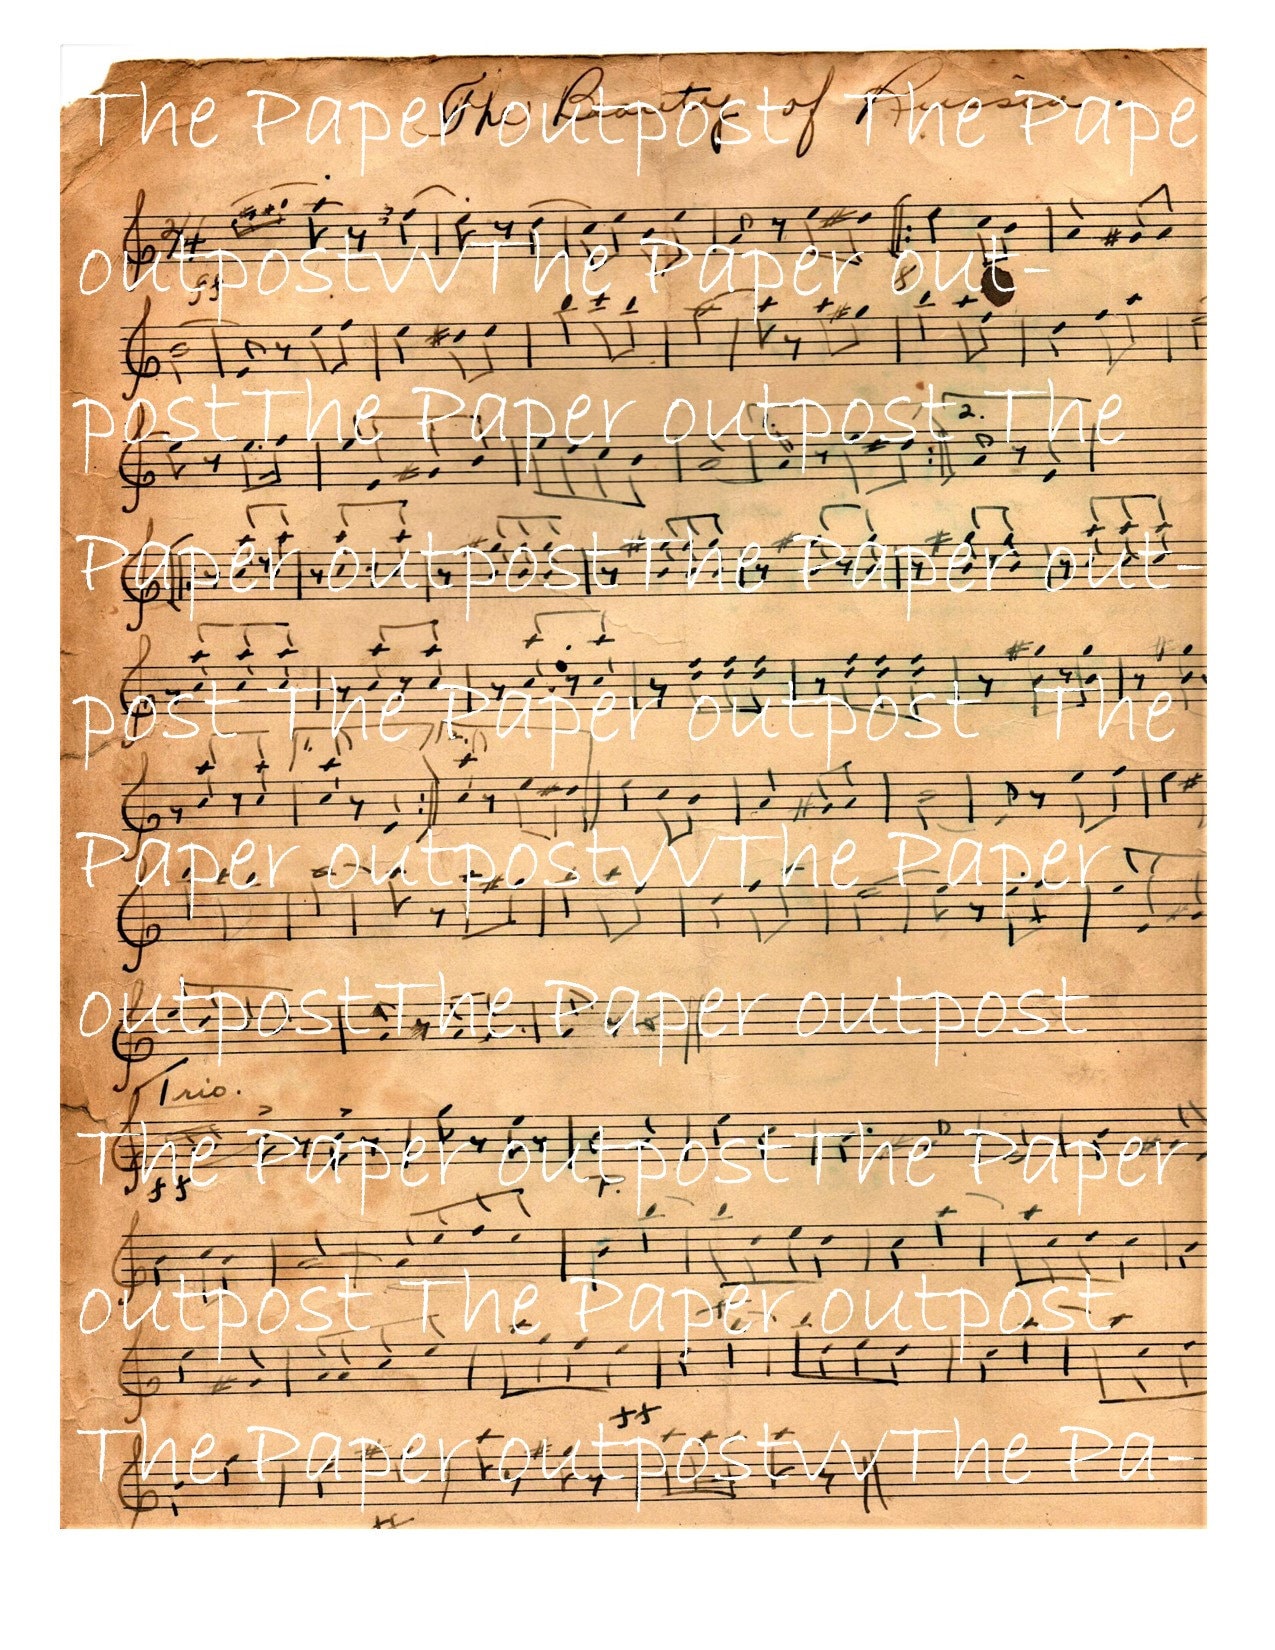 The Beauty of Russia.
The Paper outpost The Pape
2/4
3
outpostvvThe Paper out-
ff
8
postThe Paper outpost The
2.
Paper outpostThe Paper out-
post The Paper outpost The
1. 2.
Paper outpostvvThe Paper
outpostThe Paper outpost
Trio.
The Paper outpostThe Paper
ff
outpost The Paper outpost
ff
The Paper outpostvvThe Pa-
ff